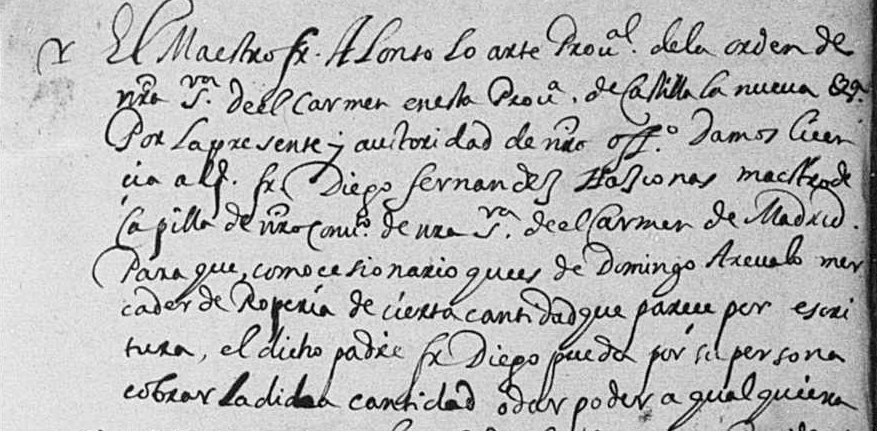 El Maestro fr. Alonso Lo arte Prou.al dela orden de
nra S.ra de el Carmen en esta Prou.a de Castilla la nueva &c.a
Por la presente y autoridad de nro off.o Damos licen
cia al P. fr. Diego fernandez maestro de
Capilla de nro Conu.to de nra S.ra de el Carmen de Madrid.
Para que, como cesionario que es de Domingo Arevalo mer
cader de Ropería de cierta cantidad que parece por escri
tura, el dicho padre fr Diego pueda por su persona
cobrar la dicha cantidad o dar poder a qualquiera